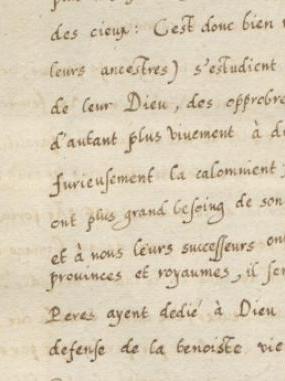 des cieux : C'est donc bien
leurs ancestres) s'estudient
de leur Dieu, des opprobre
d'autant plus vivement à d
furieusement la calomnient
ont plus grand besoing de son
et à nous leurs successeurs ont
provinces et royaumes, il sem
Peres ayent dedié à Dieu
defense de la benoiste vie